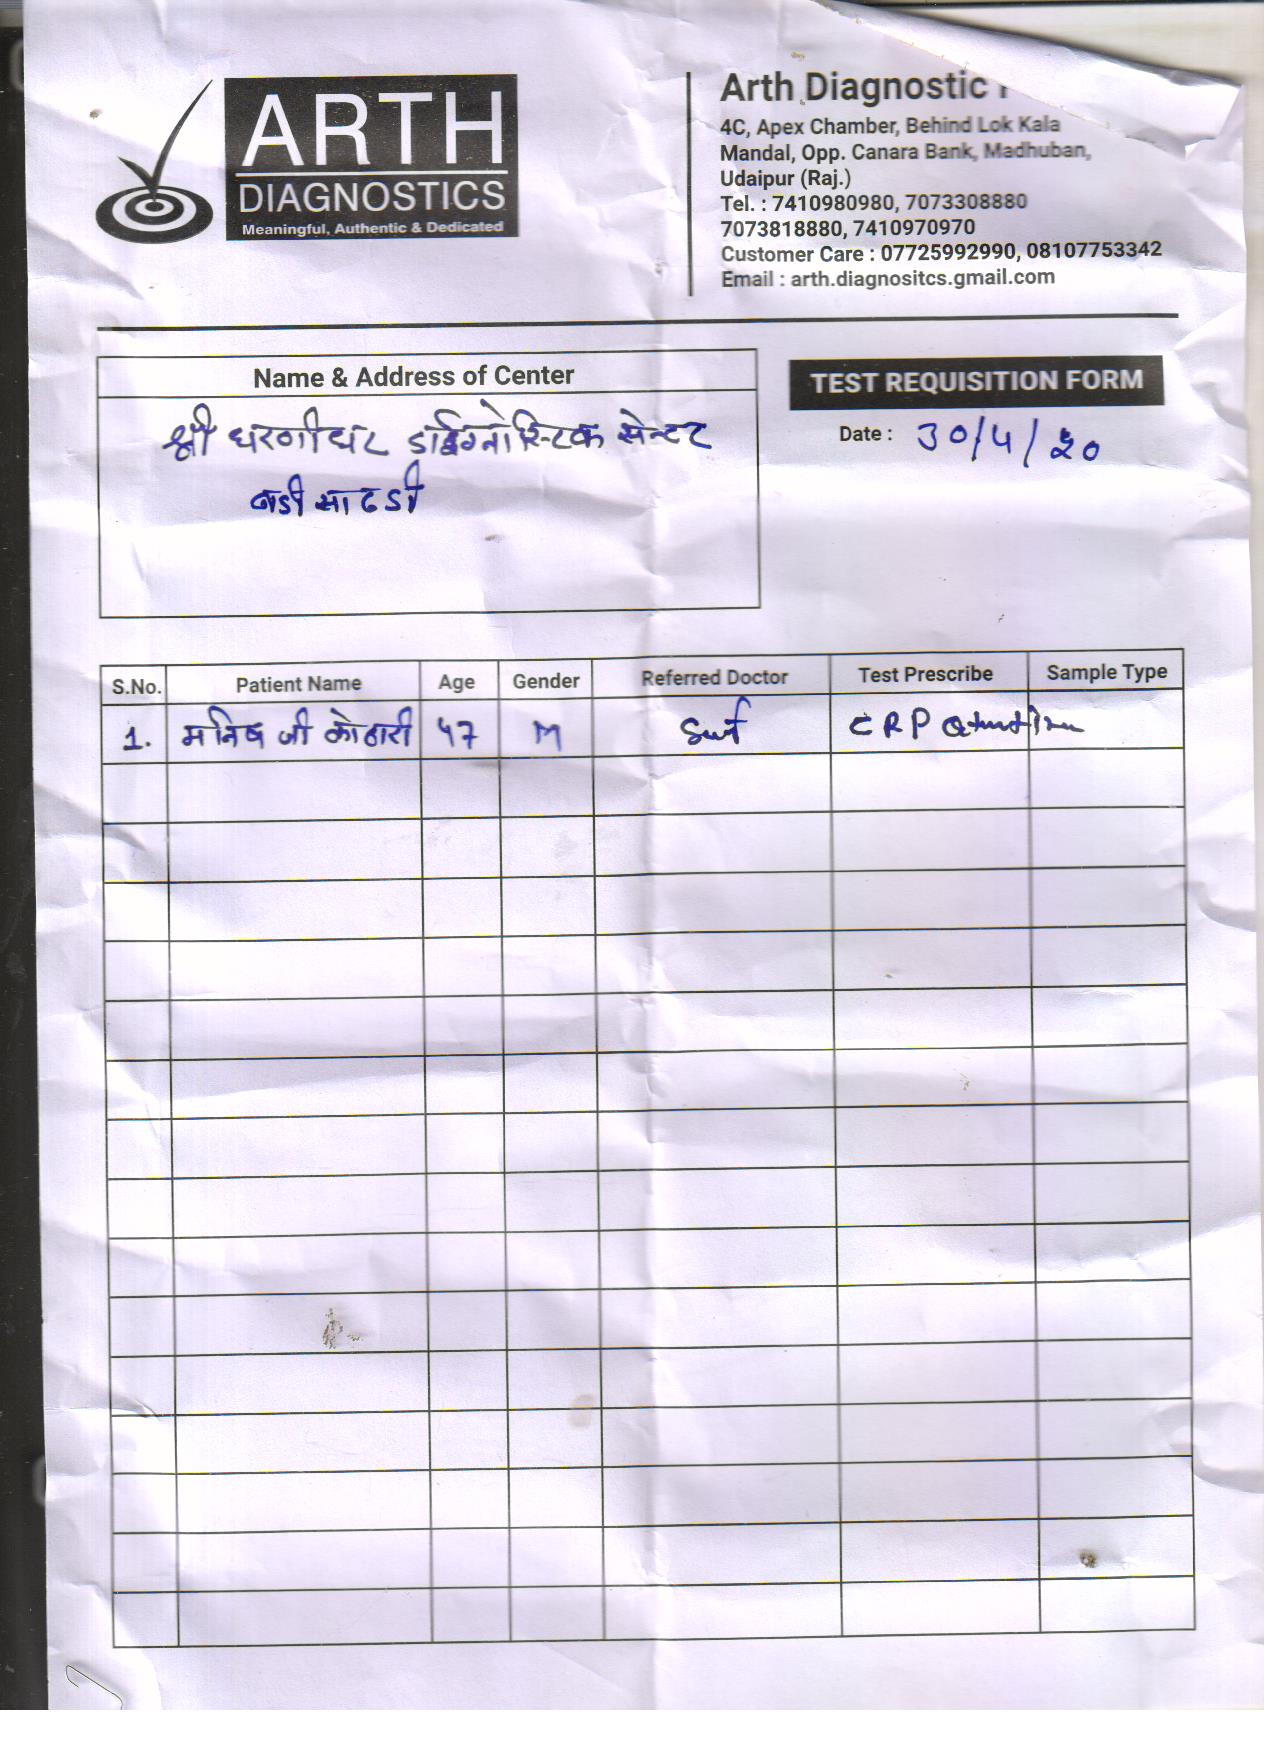 ARTH
DIAGNOSTICS
Meaningful, Authentic & Dedicated
Arth Diagnostic
4C, Apex Chamber, Behind Lok Kala
Mandal, Opp. Canara Bank, Madhuban,
Udaipur (Raj.)
Tel. : 7410980980, 7073308880
7073818880, 7410970970
Customer Care : 07725992990, 08107753342
Email : arth.diagnositcs.gmail.com
Name & Address of Center
श्री धरणीधर डाईग्नोस्टिक सेन्टर
बडी सादडी
TEST REQUISITION FORM
Date : 30/4/20
S.No. Patient Name Age Gender Referred Doctor Test Prescribe Sample Type
1. मनिष जी कोठारी 47 M Self CRP